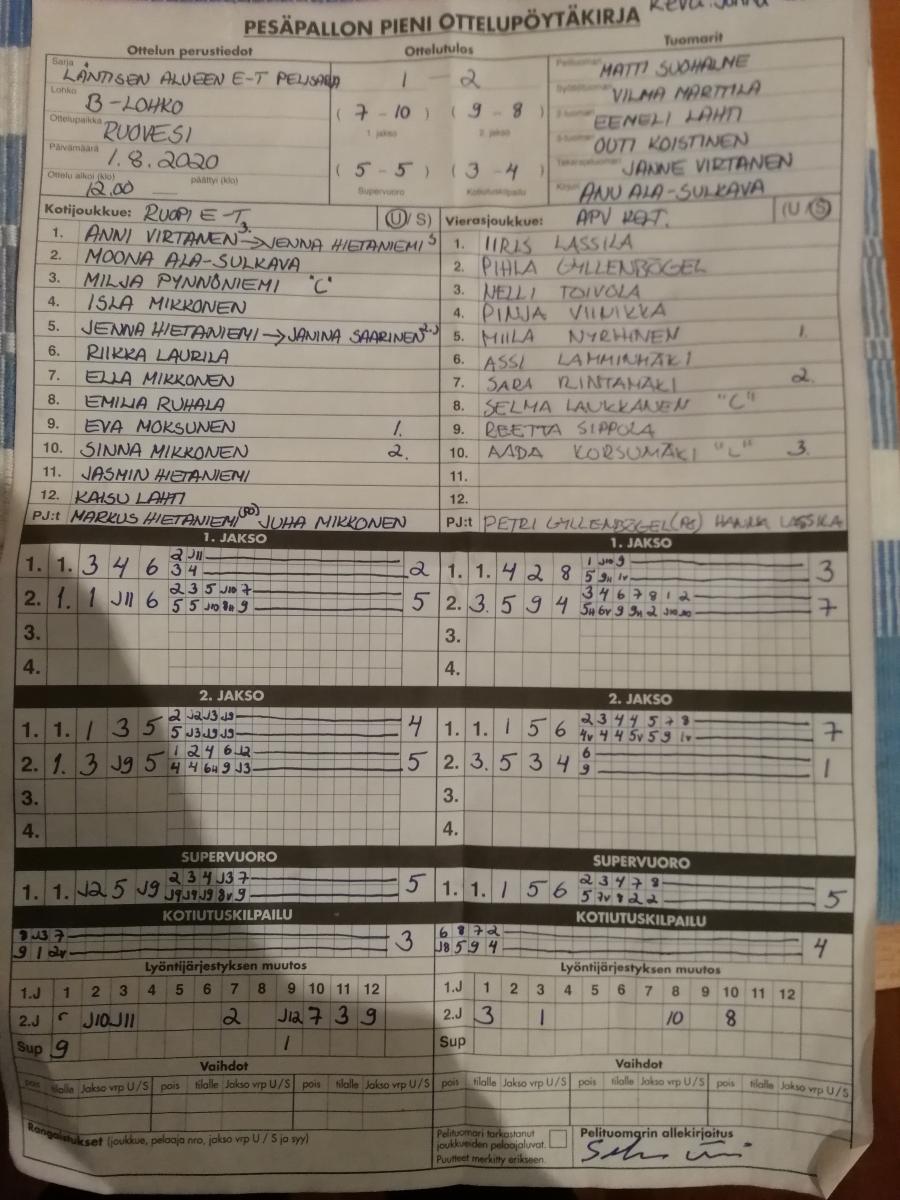 PESÄPALLON PIENI OTTELUPÖYTÄKIRJA
Ottelun perustiedot
Sarja
LÄNTISEN ALUEEN E-T
Lohko
B-LOHKO
Ottelupaikka
RUOVESI
Päivämäärä
1.8.2020
Ottelu alkoi (klo) päättyi (klo)
12.00
Ottelutulos
1 - 2
(7 - 10) (9 - 8)
1. jakso 2. jakso
(5 - 5) (3 - 4)
Supervuoro Kotiutuskilpailu
Tuomarit
MATTI SUOHALME
VILMA MARTTILA
EEMELI LAHTI
OUTI KOISTINEN
JANNE VIRTANEN
ANU ALA-SULKAVA
Kotijoukkue: RUOPI E-T (U/S)
1. ANNI VIRTANEN 3. → JENNA HIETANIEMI S
2. MOONA ALA-SULKAVA
3. MILJA PYNNÖNIEMI "C"
4. ISLA MIKKONEN
5. JENNA HIETANIEMI → JANINA SAARINEN 2.J
6. RIIKKA LAURILA
7. ELLA MIKKONEN
8. EMILIA RUHALA
9. EVA MOKSUNEN 1.
10. SINNA MIKKONEN 2.
11. JASMIN HIETANIEMI
12. KAISU LAHTI
PJ:t MARKUS HIETANIEMI (PJ) JUHA MIKKONEN
Vierasjoukkue: APV (U/S)
1. IIRIS LASSILA
2. PIHLA GYLLENBÖGEL
3. NELLI TOIVOLA
4. PINJA VIINIKKA
5. MIILA NYRHINEN 1.
6. ASSI LAMMINMÄKI
7. SARA RINTAMÄKI 2.
8. SELMA LAUKKANEN "C"
9. REETTA SIPPOLA
10. AADA KORSUMÄKI "L" 3.
11.
12.
PJ:t PETRI GYLLENBÖGEL HANNA LASSILA
1. JAKSO
1. 1. 3 4 6 2 J11 2
3 4
2. 1. 1 J11 6 2 3 5 J10 7 5
5 5 J10 8H 9
3.
4.
1. JAKSO
1. 1. 4 2 8 1 J10 9 3
5 9H 1V
2. 3. 5 9 4 3 4 6 7 8 1 2 7
5H 6V 9 9H 2 J10 J10
3.
4.
2. JAKSO
1. 1. 1 3 5 2 J2 J3 J9 4
5 J3 J9 J9
2. 1. 3 J9 5 1 2 4 6 12 5
4 4 6H 9 J3
3.
4.
2. JAKSO
1. 1. 1 5 6 2 3 4 4 5 7 8 7
4V 4 4 5V 5 9 1V
2. 3. 5 3 4 6 1
9
3.
4.
SUPERVUORO
1. 1. J2 5 J9 2 3 4 J3 7 5
J9 J9 J9 8V 9
SUPERVUORO
1. 1. 1 5 6 2 3 4 7 8 5
5 7V 8 2 2
KOTIUTUSKILPAILU
8 J3 7 3
9 1 2V
KOTIUTUSKILPAILU
6 8 7 2 4
J8 5 9 4
Lyöntijärjestyksen muutos
1.J 1 2 3 4 5 6 7 8 9 10 11 12
2.J J10 J11 2 J12 7 3 9
Sup 9 1
Lyöntijärjestyksen muutos
1.J 1 2 3 4 5 6 7 8 9 10 11 12
2.J 3 1 10 8
Sup
Vaihdot
pois tilalle Jakso vrp U/S pois tilalle Jakso vrp U/S pois tilalle Jakso vrp U/S
Vaihdot
pois tilalle Jakso vrp U/S pois tilalle Jakso vrp U/S pois tilalle Jakso vrp U/S
Rangaistukset (joukkue, pelaaja nro, jakso vrp U / S ja syy)
Pelituomari tarkastanut
joukkueiden pelaajaluvat.
Puutteet merkitty erikseen.
Pelituomarin allekirjoitus